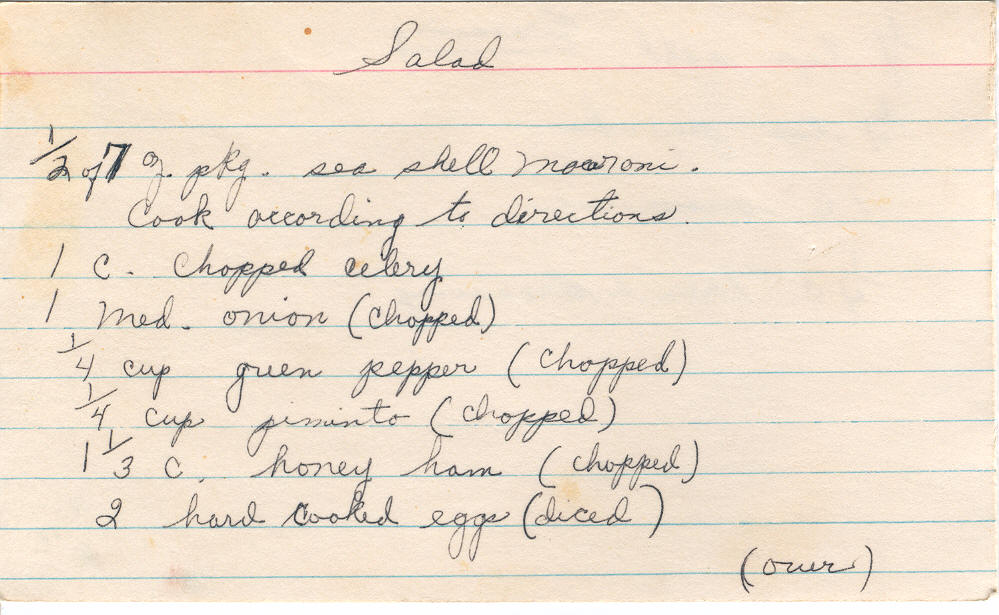 Salad
1/2 of 7 oz. pkg. sea shell macaroni.
Cook according to directions.
1 c. chopped celery
1 med. onion (chopped)
1/4 cup green pepper (chopped)
1/4 cup piminto (chopped)
1 1/3 c. honey ham (chopped)
2 hard cooked eggs (diced)
(over)